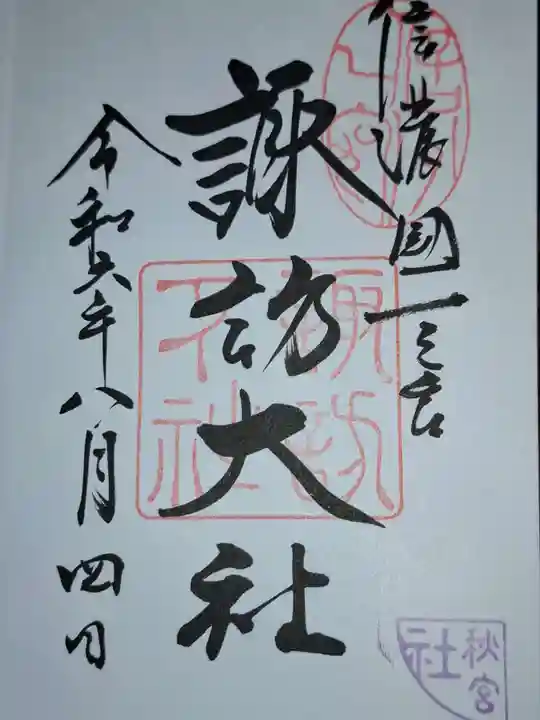 信濃國一之宮
諏訪大社
令和六年八月四日
諏訪
大社
秋宮
社